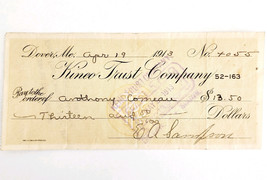 Dover, Me. Apr 19 1913 No. 4055
Kineo Trust Company 52-163
Pay to the order of Anthony Comeau $13.50
Thirteen and 50/100 Dollars
E A Sampson